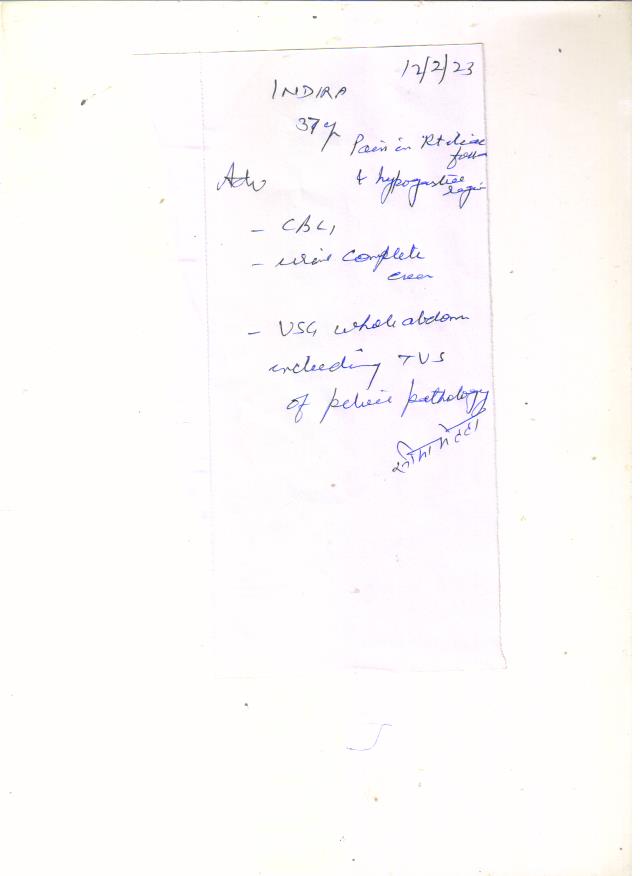 12/2/23
INDIRA
37y
Pain in Rt iliac
fossa
Adv
& hypogastric
region
- CBC,
- urine complete
exam
- USG whole abdomen
including TVS
of pelvic pathology